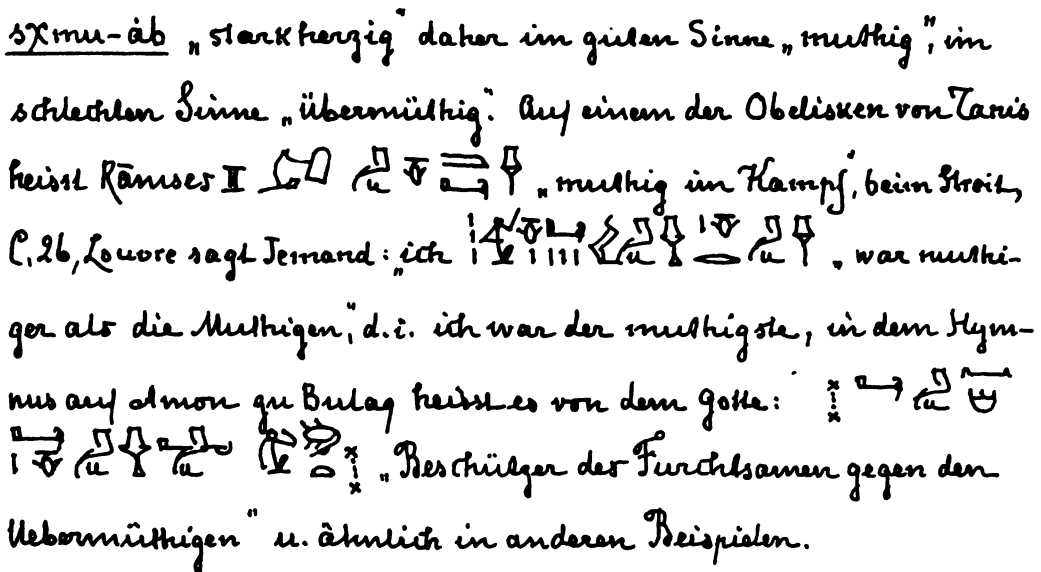 sχmu-áb „starkherzig“ daher im guten Sinne „muthig“, im
schlechten Sinne „übermüthig“. Auf einem der Obelisken von Tanis
heisst Rāmses II „muthig im Kampf“, beim Streit,
C, 26, Louvre sagt Jemand: „ich „war muthi-
ger als die Muthigen“, d. i. ich war der muthigste, in dem Hym-
nus auf Amon zu Bulaq heisst es von dem Gotte:
„Beschützer des Furchtsamen gegen den
Uebermüthigen“ u. ähnlich in anderen Beispielen.